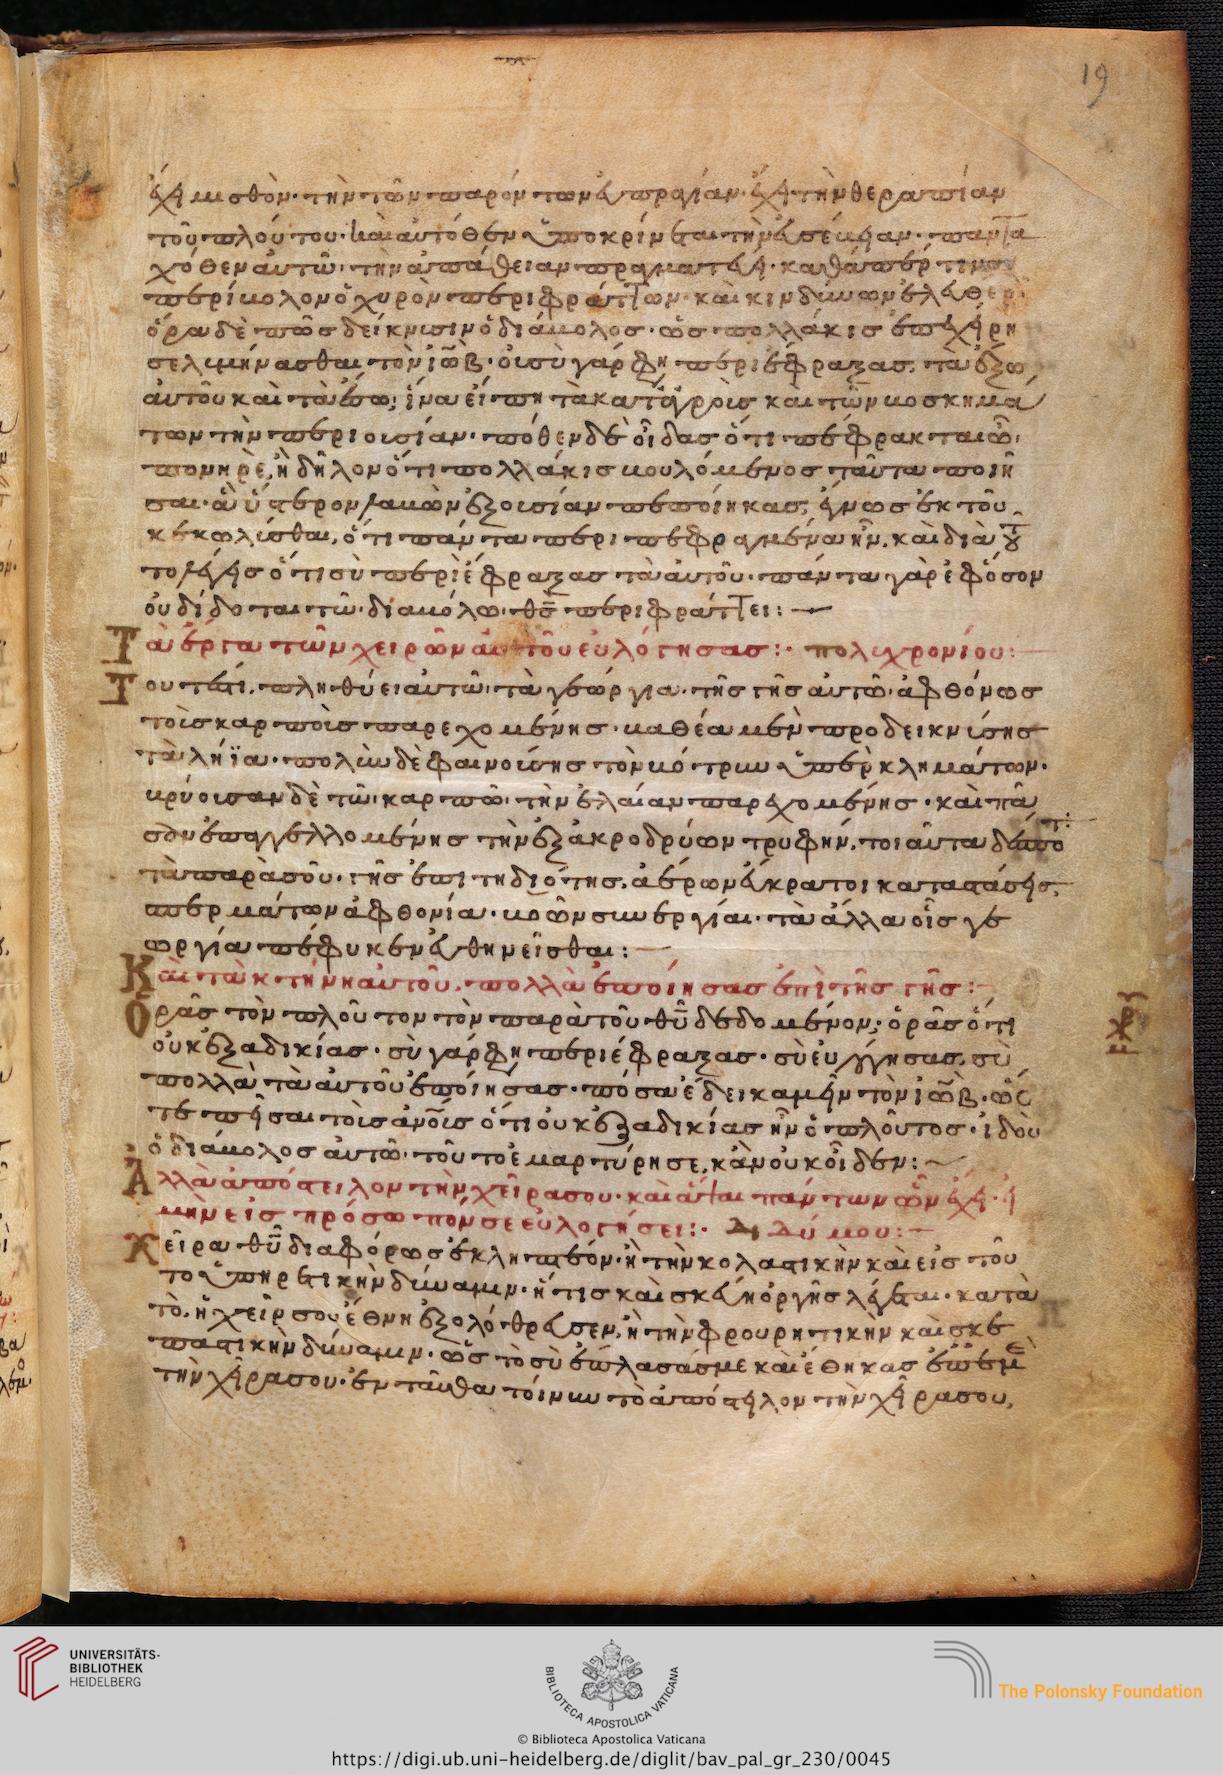 19
ἔχει μισθὸν· τὴν τῶν παρόντων εὐπραγίαν· ἔχει τὴν θεραπείαν
τοῦ πλούτου· καὶ αὐτόθεν ὑποκρίνεται τὴν εὐσέβειαν· παντα
χόθεν αὐτῶ· τὴν ἀπάθειαν πραγματεύει· καθάπερ τινα
περίβολον ὀχυρὸν περιφράττων· καὶ κινδύνων ἐλευθερ
ὅρα δὲ πῶς δείκνυσιν ὁ διάβολος· ὡς πολλάκις ἐπεχείρη
σε λυμήνασθαι τὸν ἰὼβ· οὐ σὺ γάρ φησι περιέφραξας, τὰ ἔξω
αὐτοῦ καὶ τὰ ἔσω; ἵνα εἴπη τὰ κατ' ἀγροὺς καὶ τῶν βοσκημά
των τὴν περιουσίαν· πόθεν δὲ οἶδας ὅτι πέφρακται ὦ,
πονηρὲ, ἢ δῆλον ὅτι πολλάκις βουλόμενος ταῦτα ποιῆ
σαι· ἃ ὕστερον λαβὼν ἐξουσίαν πεποίηκας, ἔγνως ἐκ τοῦ
κεκωλύσθαι, ὅτι πάντα περιπεφραγμένα ἦν, καὶ διὰ τοῦ
το λέγεις ὅτι σὺ περιέφραξας τὰ αὐτοῦ· πάντα γὰρ ἐφ' ὅσον
οὐ δίδοται τῶ διαβόλω· θς περιφράττει:
Τὰ ἔργα τῶν χειρῶν αὐτοῦ εὐλόγησας: πολυχρονίου:
Τουτέστι, πληθύει αὐτῶ· τὰ γεώργια· τῆς γῆς αὐτῶ· ἀφθόνως
τοῖς καρποῖς παρεχομένης· βαθέα μὲν προδεικνύσης
τὰ λήϊα· πολὺν δὲ φαινούσης τὸν βότρυν ὑπὲρ κλημάτων·
βρύουσαν δὲ τῶ καρπῶ· τὴν ἐλαίαν παρεχομένης· καὶ πᾶ
σαν ἐπαγγελλομένης τὴν ἐξ ἀκροδρύων τρυφήν. τοιαῦτα δέσποτ:
τὰ παρὰ σοῦ· γῆς ἐπιτηδιότης. ἀέρων εὔκρατοι καταστάσεις,
σπερμάτων ἀφθονία· βοῶν συνεργίαι· τὰ ἄλλα οἷς γε
ωργία πέφυκεν εὐθηνεῖσθαι:
Καὶ τὰ κτήνη αὐτοῦ. πολλὰ ἐποίησας ἐπὶ τῆς γῆς:
Ὁρᾶς τὸν πλοῦτον τὸν παρὰ τοῦ θῦ δεδομένον; ὁρᾶς ὅτι
οὐκ ἐξ ἀδικίας· σὺ γάρ φησι περιέφραξας· σὺ εὐλόγησας, σὺ
πολλὰ τὰ αὐτοῦ ἐποίησας· πόσα ἔδει καμεῖν τὸν ἰὼβ· ὥς
τε πεῖσαι τοὺς ἀνους ὅτι οὐκ ἐξ ἀδικίας ἦν ὁ πλοῦτος· ἰδοὺ
ὁ διάβολος αὐτῶ τοῦτο ἐμαρτύρησε, κἂν οὐκ οἶδεν:
Ἀλλὰ ἀπόστειλον τὴν χεῖρα σου· καὶ ἅψαι πάντων ὧν ἔχει· ἦ
μὴν εἰς πρόσωπόν σε εὐλογήσει: Διδύμου:
Χεῖρα θῦ διαφόρως ἐκληπτέον· ἢ τὴν κολαστικὴν καὶ εἰς τοῦ
το ὑπηρετικὴν δύναμιν· ἥτις καὶ σκεύη ὀργῆς λέγεται· κατὰ
τὸ, ἡ χείρ σου ἔθνη ἐξολόθρευσεν, ἢ τὴν φρουρητικὴν καὶ σκε
παστικὴν δύναμιν· ὡς τὸ σὺ ἔπλασάς με καὶ ἔθηκας ἐπ' ἐμὲ
τὴν χεῖρα σου· ἐνταῦθα τοίνυν τὸ ἀπόστειλον τὴν χεῖρα σου,
UNIVERSITÄTS-
BIBLIOTHEK
HEIDELBERG
BIBLIOTECA APOSTOLICA VATICANA
The Polonsky Foundation
© Biblioteca Apostolica Vaticana
https://digi.ub.uni-heidelberg.de/diglit/bav_pal_gr_230/0045